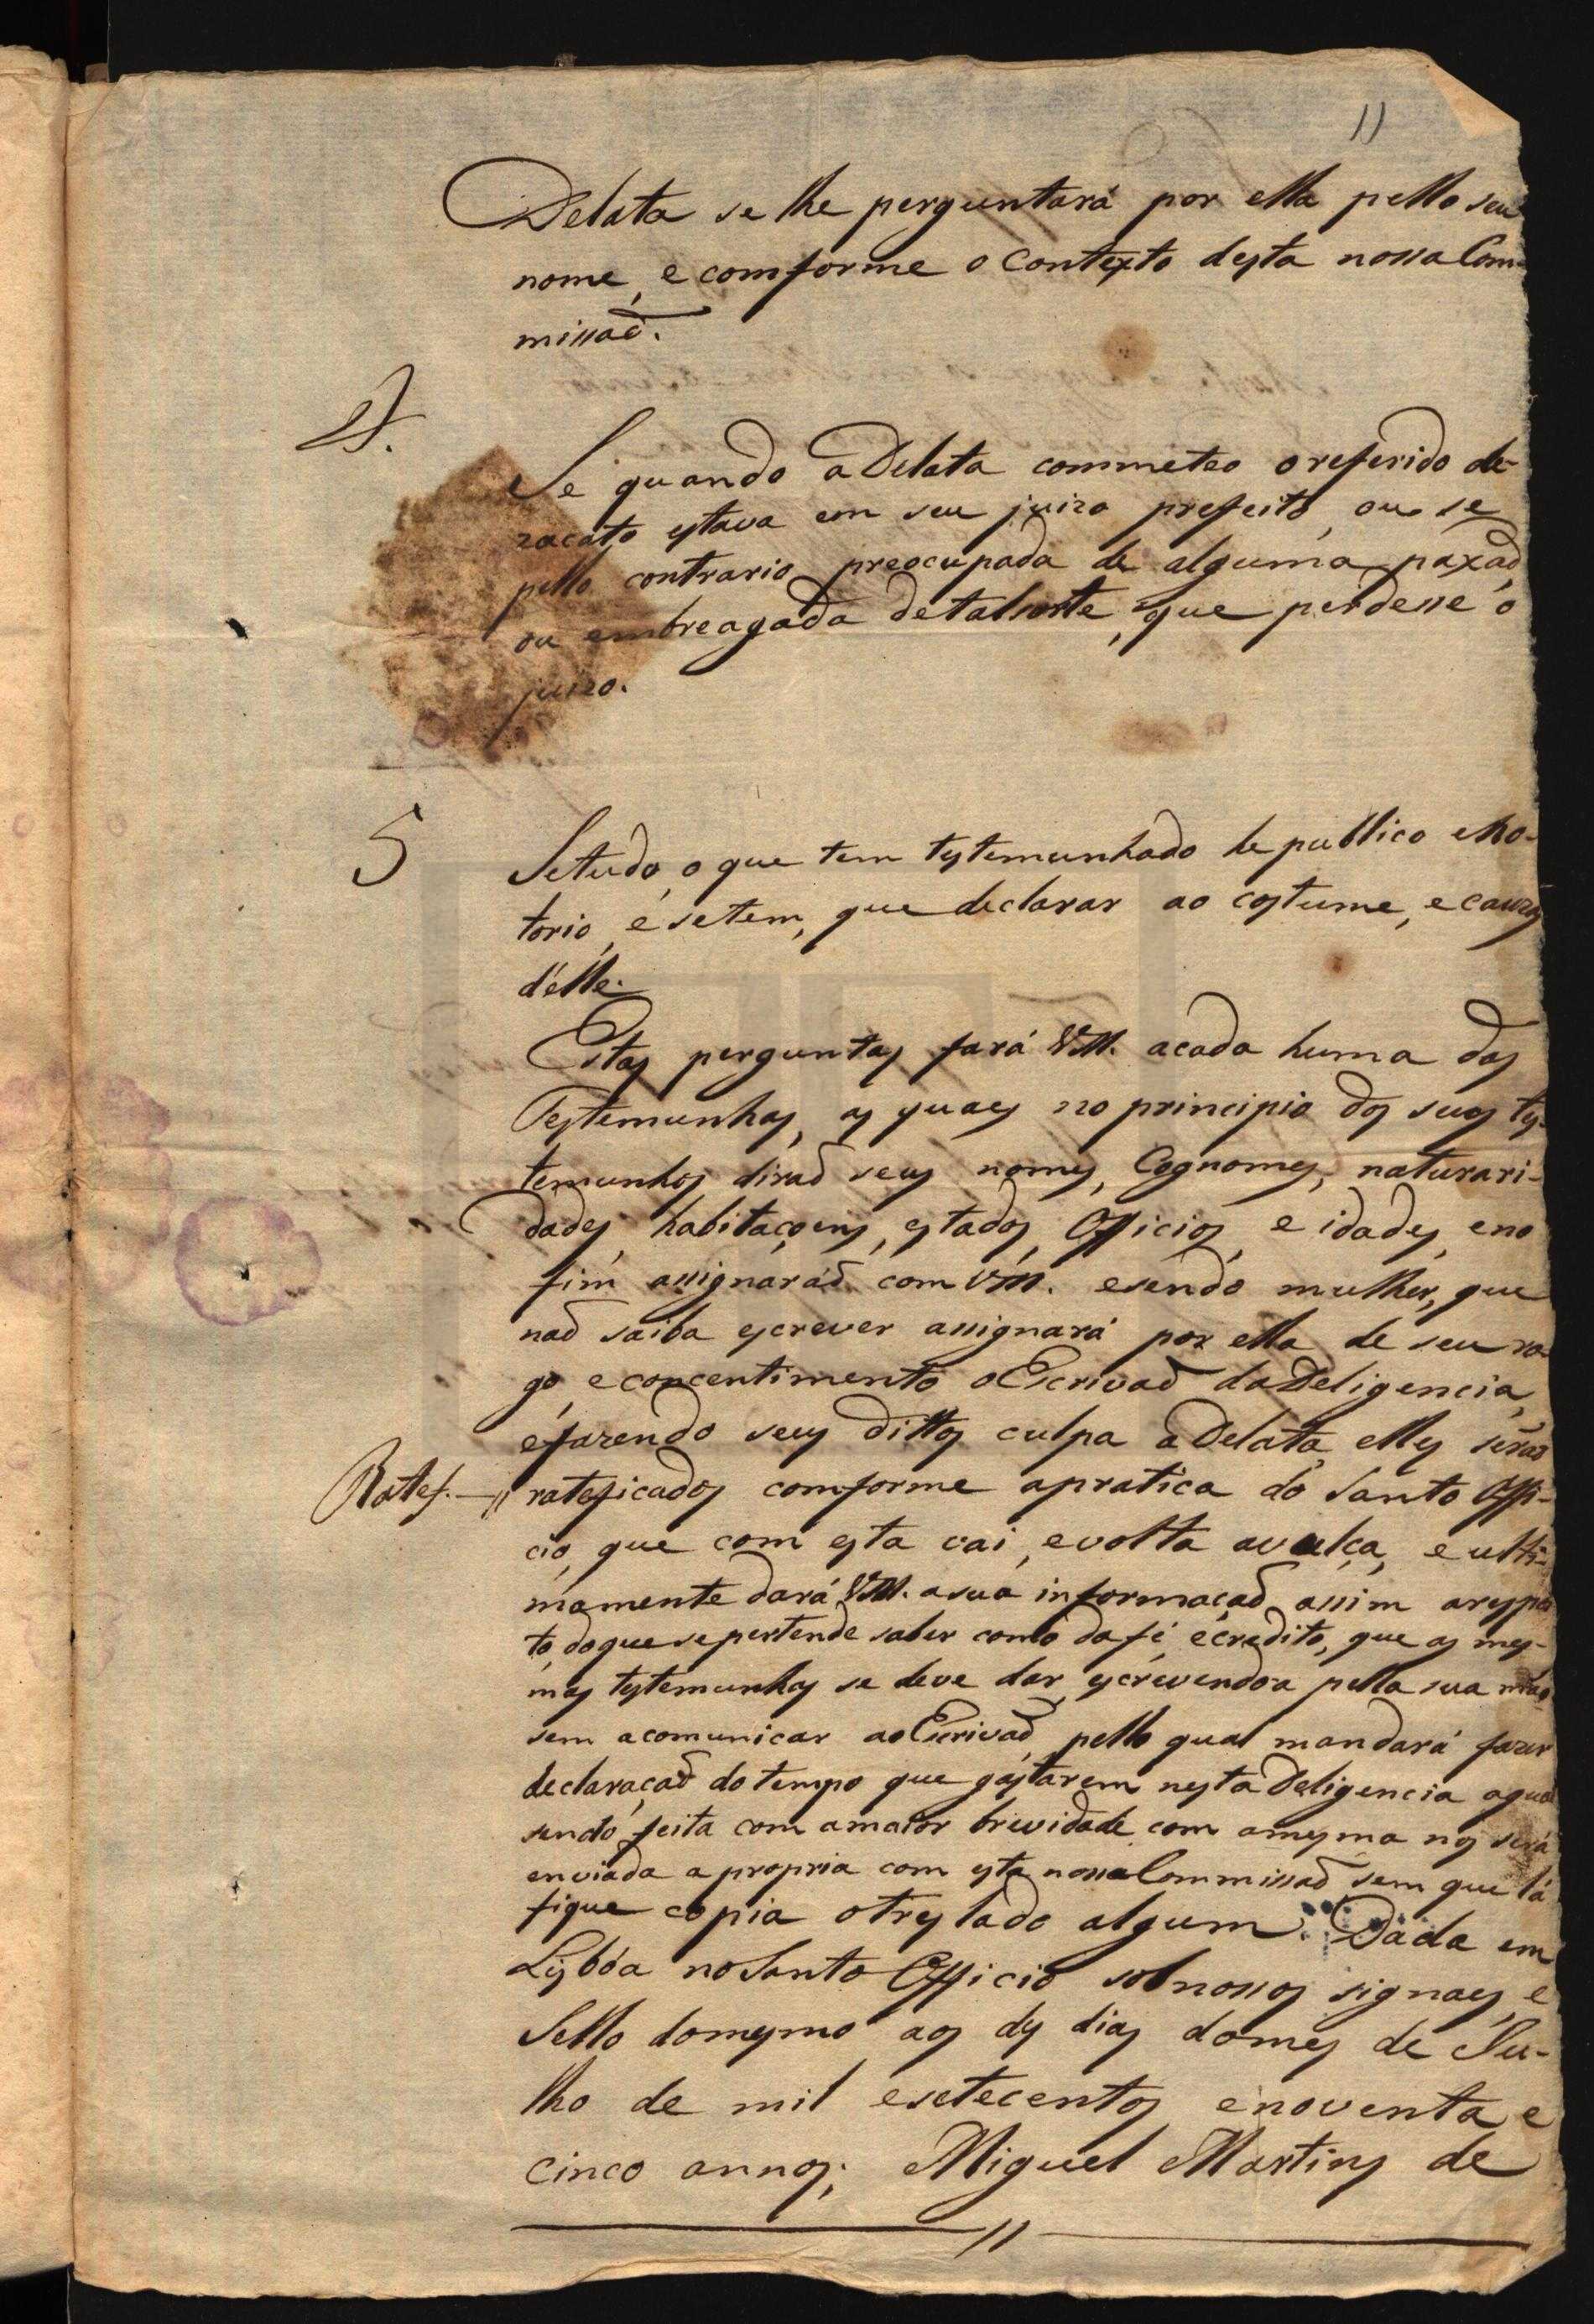 11
Delata se lhe perguntará por ella pello seu
nome, e comforme o Contexto desta nossa Com-
missaõ.
4.
Se quando a Delata commeteo o referido de-
zacato estava em seu juizo prefeito, ou se
pello contrario preocupada de alguma paxaõ,
ou embreagada de tal sorte, que perdesse o
juizo.
5
Se tudo, o que tem testemunhado he publico e No-
torio, e se tem, que declarar ao costume, e cauza
d'élle.
Estas perguntas fará VM. a cada huma das
Testemunhas, as quaes no principio dos seus tes-
temunhos diraõ seus nomes, Cognomes, naturari-
dades, habitaçoens, estados, Officios, e idades, e no
fim assignaráõ com VM. e sendo mulher, que
naõ saiba escrever assignará por ella de seu ro-
go, e concentimento o Escrivaõ da Deligencia,
e fazendo seus dittos culpa a Delata, elles seraõ
Ratef. — // rateficados comforme a pratica do Santo Offi-
cio, que com esta vai, e volta avulça, e ulti-
mamente dará VM. a sua informaçaõ assim a respei-
to, do que se pertende saber como da fé, e credito, que as mes-
mas testemunhas se deve dar, escrevendo a pella sua maõ,
sem a comunicar ao Escrivaõ, pello qual mandará fazer
declaraçaõ do tempo que gastarem nesta Deligencia a qual
sendo feita com a maior brevidade com a mesma nos será
enviada a propria com esta nossa Commissaõ sem que lá
fique copia o treslado algum. Dada em
Lisbôa no Santo Officio sob nossos signaes, e
Sello do mesmo aos des dias do mes de Ju-
lho de mil e setecentos e noventa e
cinco annos; Miguel Martins de